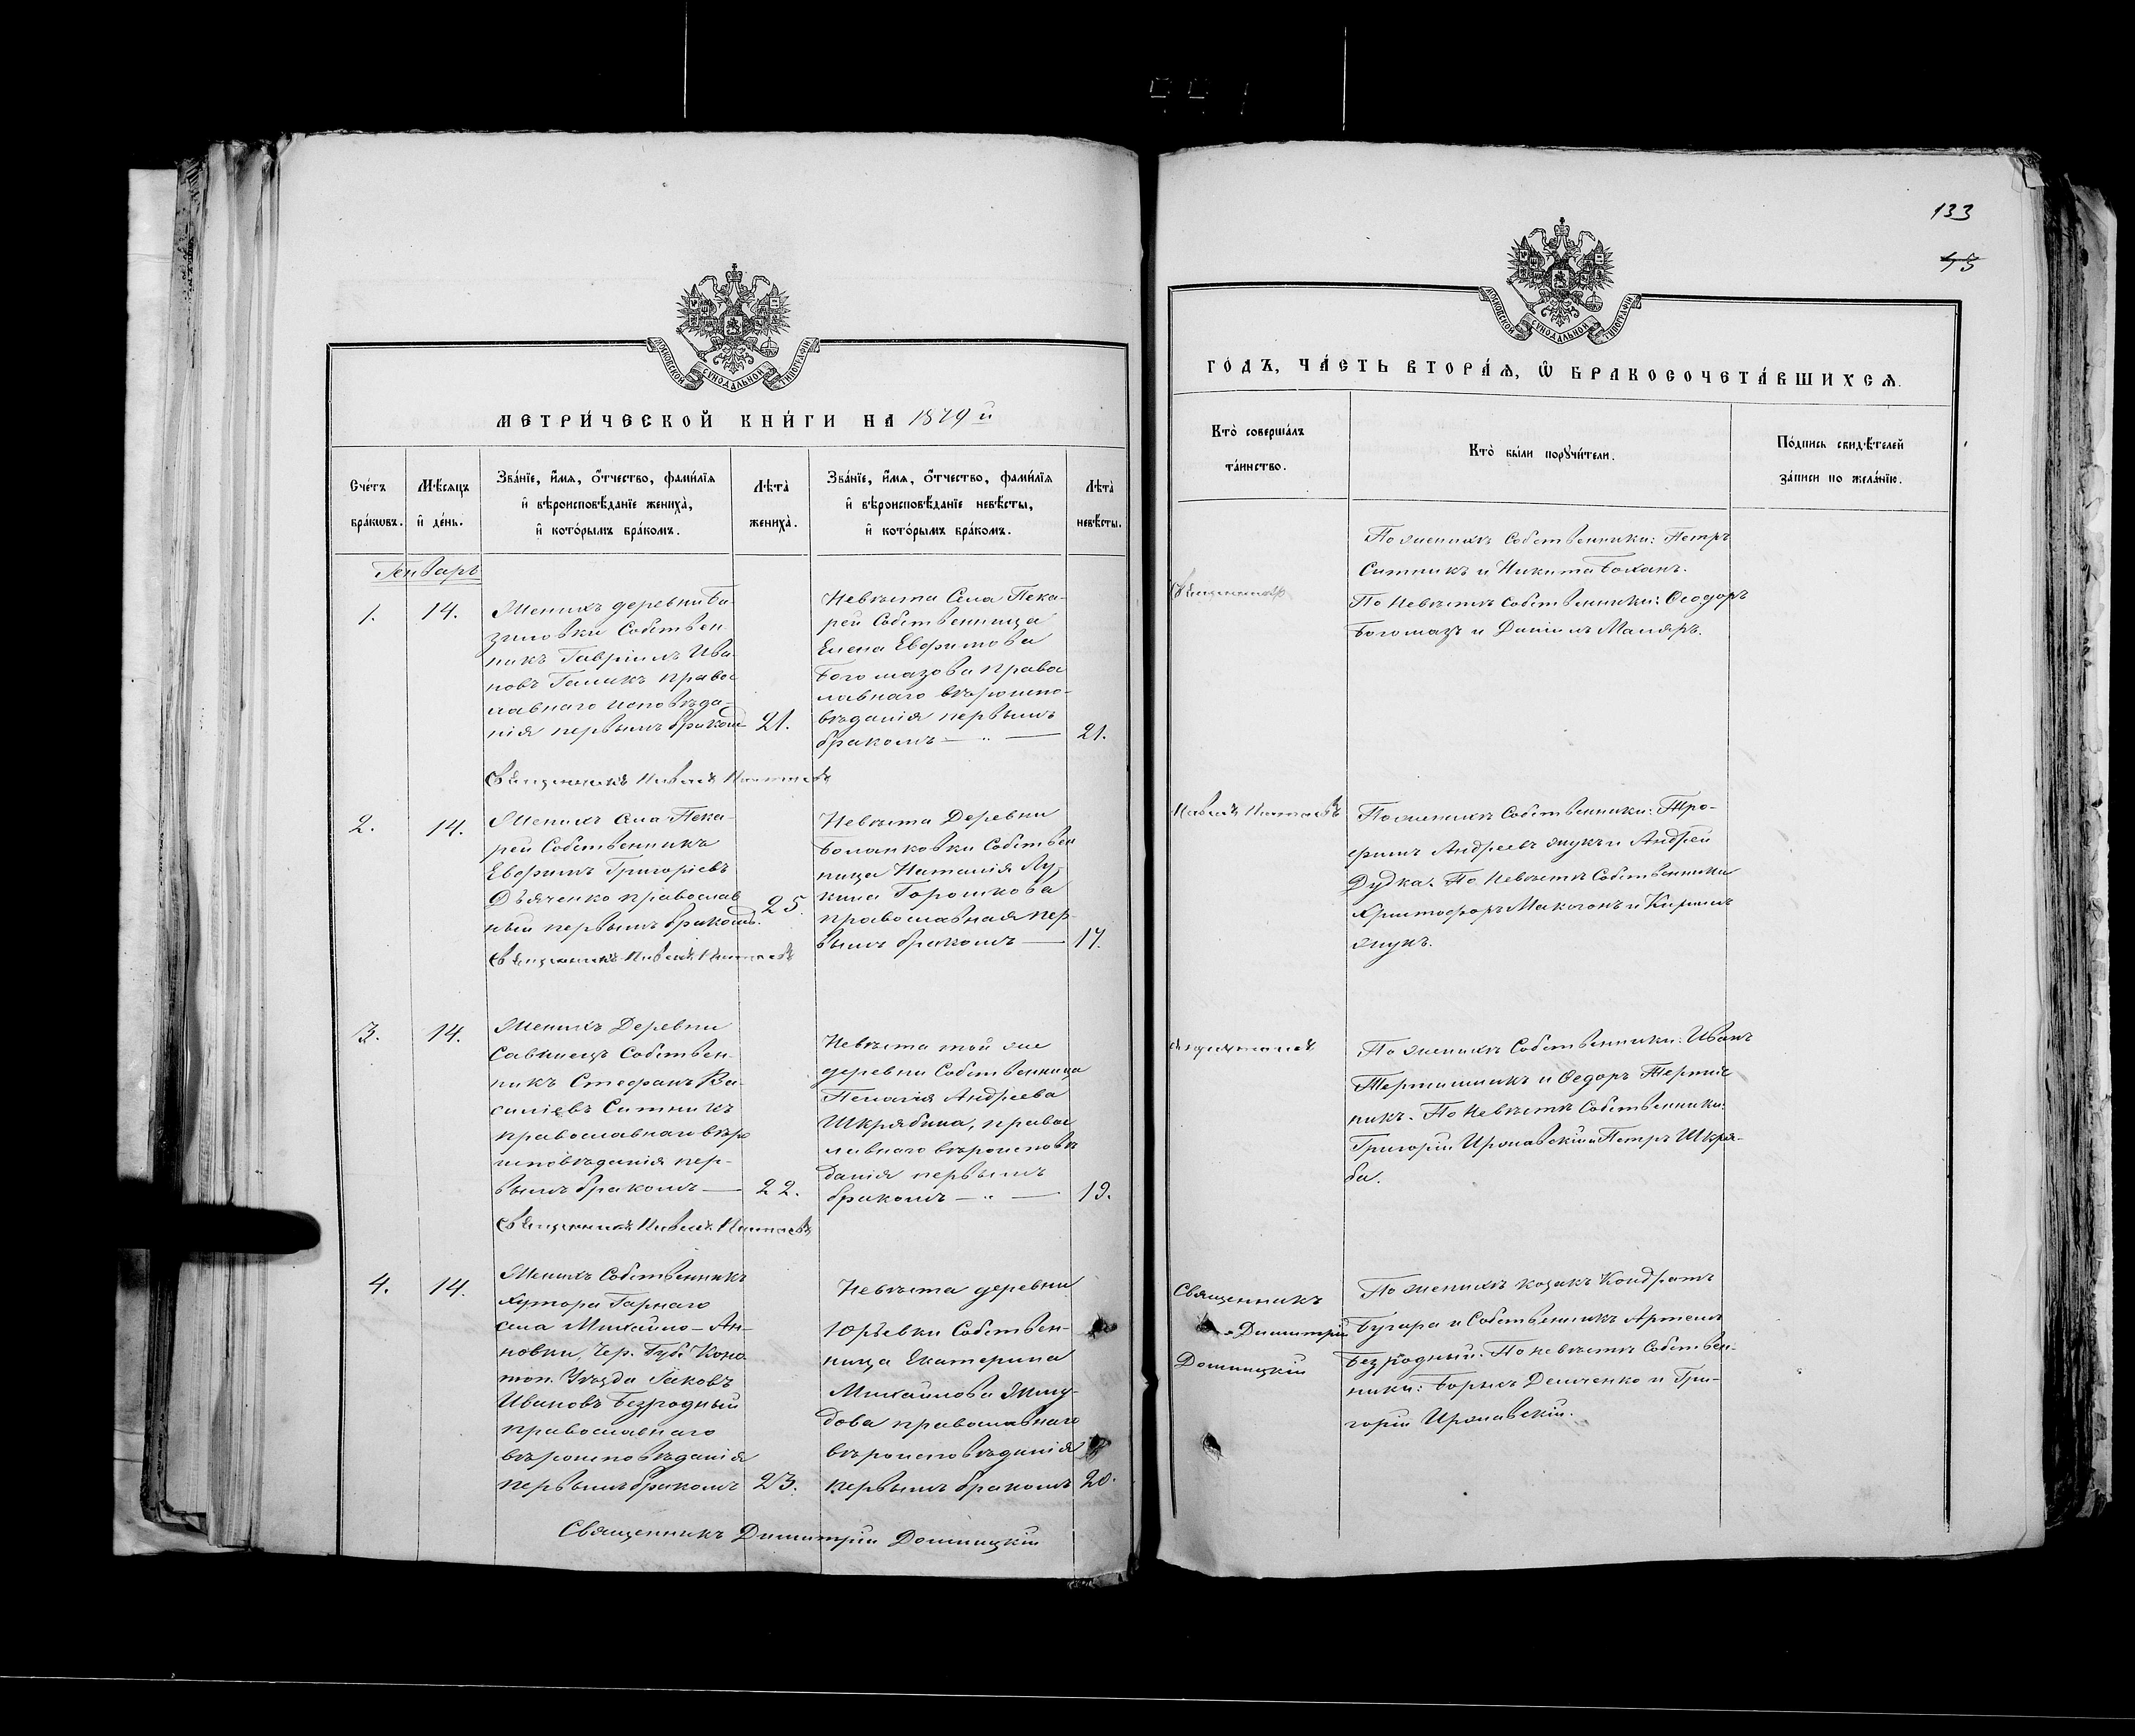 133
45
МОСКОВСКОЙ СУНОДАЛЬНОЙ ТИПОГРАФІИ
МЕТРИ́ЧЕСКОЙ КНИ́ГИ НА 1879 й
Сче́тъ бра́кωвъ.
Мѣ́сяцъ и҆ де́нь.
Зва́нїе, и҆́мѧ, ѻ҆́тчество, фами́лїѧ
и҆ вѣроисповѣ́данїе жениха̀,
и҆ кото́рымъ бра́комъ.
Лѣта̀ жениха̀.
Зва́нїе, и҆́мѧ, ѻ҆́тчество, фами́лїѧ
и҆ вѣроисповѣ́данїе невѣ́сты,
и҆ кото́рымъ бра́комъ.
Лѣта̀ невѣ́сты.
Генварь
1.
14.
Женихъ деревни Ба-
зиловки Собствен
никъ Гавріилъ Ива-
новъ Галикъ правос
лавнаго исповѣда-
нія первымъ бракомъ
21.
Невѣста Села Пека-
рей Собственница
Елена Евфимова
Богомазова правос
лавнаго вѣроиспо-
вѣданія первымъ
бракомъ — " —
21.
Священникъ Павелъ
2.
14.
Женихъ села Пека-
рей Собственникъ
Евфимъ Григоріевъ
Дьяченко православ
ный первымъ бракомъ.
25.
Невѣста Деревни
Боланковки Собствен
ница Наталія Лу-
кина Горошкова
православная пер-
вымъ бракомъ —
17.
Священникъ Павелъ
3.
14.
Женихъ Деревни
Савинецъ Собствен-
никъ Стефанъ Ва-
силіевъ Ситникъ
православнаго вѣро
исповѣданія пер-
вымъ бракомъ —
22.
Невѣста той же
деревни Собственница
Пелагія Андреева
Шкрябина, правос
лавнаго вѣроисповѣ
данія первымъ
бракомъ — " —
19.
Священникъ Павелъ
4.
14.
Женихъ Собственникъ
Хутора Гарнаго
села Михайло-Ан-
новки, Чер. Губ. Коно
топ. Уѣзда Іаковъ
Ивановъ Безродный
православнаго
вѣроисповѣданія
первымъ бракомъ
23.
Невѣста деревни
Юрьевки Собствен-
ница Екатерина
Михайлова
дова православнаго
вѣроисповѣданія
первымъ бракомъ
20.
Священникъ Димитрій Домницкій
МОСКОВСКОЙ СУНОДАЛЬНОЙ ТИПОГРАФІИ
ГО́ДЪ, ЧА́СТЬ ВТОРА́Ѧ, Ѽ БРАКОСОЧЕТА́ВШИХСѦ.
Кто̀ соверша́лъ
та́инство.
Кто̀ бы́ли порꙋчи́тели.
По́дпись свидѣ́телей
за́писи по жела́нїю.
Священникъ
По женихѣ Собственники: Петръ
Ситникъ и Никита Боханъ.
По Невѣстѣ Собственники: Ѳеодоръ
Богомазъ и Даніилъ Маляръ.
Павелъ
По женихѣ Собственники: Тро-
фимъ Андреевъ Жукъ и Андрей
Дудка. По Невѣстѣ Собственники
Христофоръ Макогонъ и Кирилъ
Жукъ.
По женихѣ Собственники: Иванъ
Терпишникъ и Ѳедоръ
никъ. По Невѣстѣ Собственники:
Григорій Ирклавскій и Петръ Шкря-
ба.
Священникъ
Димитрій
Домницкій
По женихѣ козакъ Кондратъ
Бугара и Собственникъ Артемъ
Безродный. По невѣстѣ Собствен-
ники: Борисъ Демченко и Гри-
горій Ирклавскій.